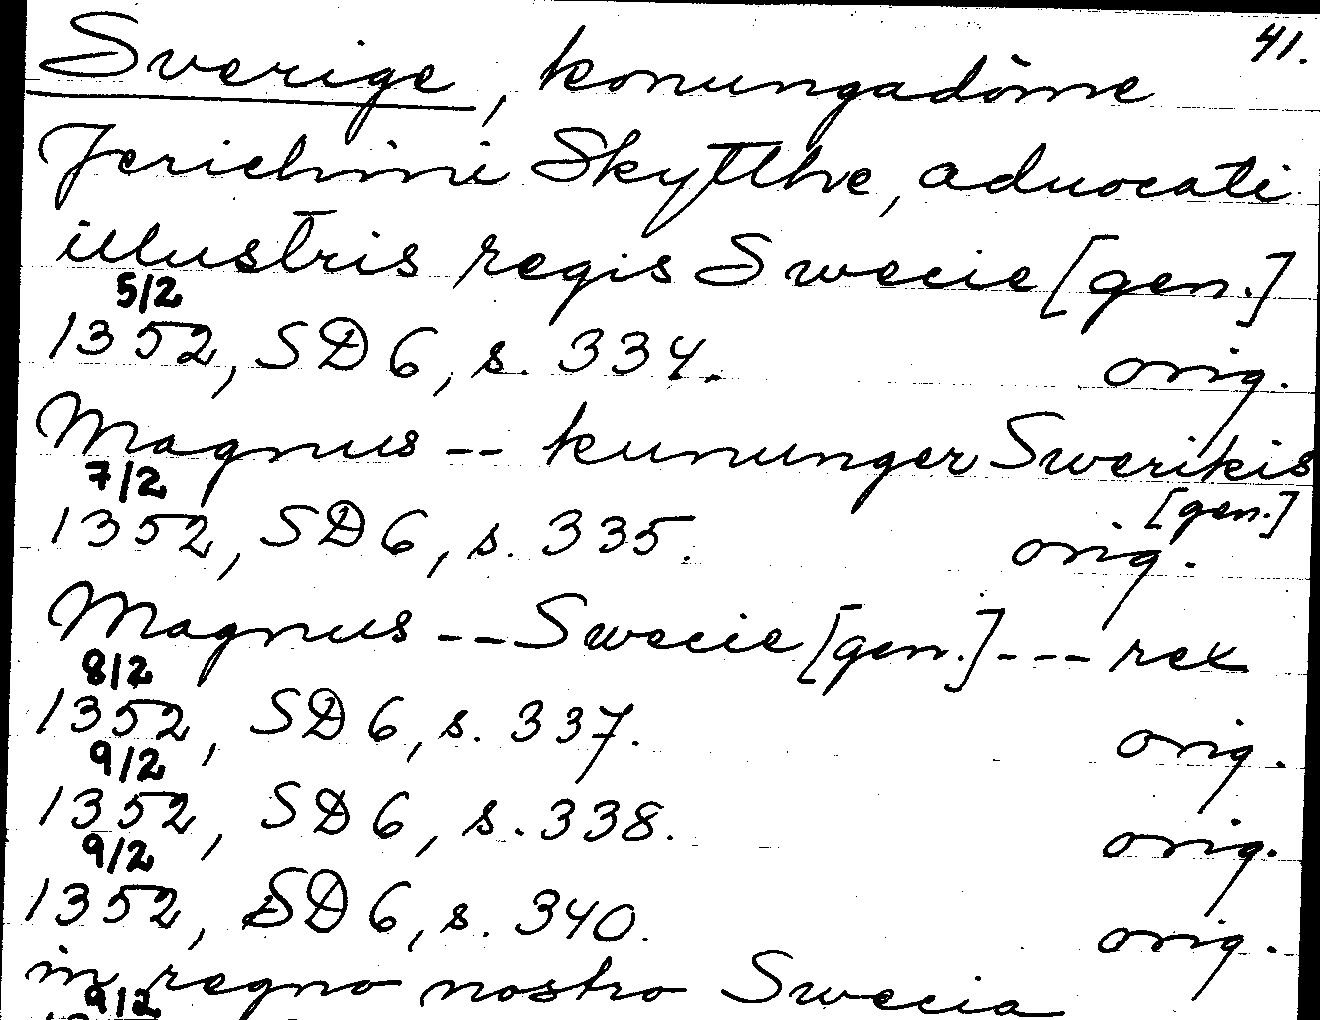 41.
Sverige, konungadöme
Jerichini Skytthe, aduocati
illustris regis Swecie [gen.]
5/2
1352, SD 6, s. 334. orig.
Magnus -- kununger Swerikis
7/2 [gen.]
1352, SD 6, s. 335. orig.
Magnus -- Swecie [gen.] --- rex
8/2
1352, SD 6, s. 337. orig.
9/2
1352, SD 6, s. 338. orig.
9/2
1352, SD 6, s. 340. orig.
in regno nostro Swecia
9/2